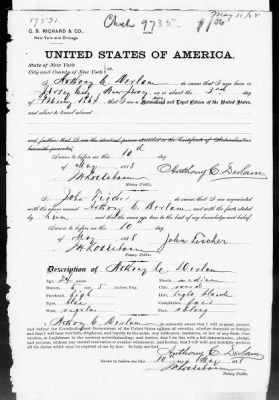 17831
Check 9735.
$1.00
May 11/88
C. B. RICHARD & CO.,
New York and Chicago.
UNITED STATES OF AMERICA.
State of New York
City and County of New York
I, Anthony C. do swear that I was born in
Jersey City, New Jersey on or about the 3rd day
of 1864, that I am a and Loyal Citizen of the United States,
and about to travel abroad.
and further that I am the identical person
herewith presented.
Sworn to before me this 10th
day of May 1888
Anthony C.
Notary Public.
I, John do swear that I am acquainted
with the above named Anthony C. and with the facts stated
by him and that the same are true to the best of my knowledge and belief.
Sworn to before me this 10
day of May 1888
John Fischer
Notary Public.
Description of Anthony C.
Age, 24 years
Stature, 5 ft 5 Inches, Eng.
Forehead, high
Eyes, blue
Nose,
Mouth, medium
Chin, round
Hair, light blonde
Complexion, fair
Face, oblong
I, Anthony C. do solemnly swear that I will support, protect
and defend the Constitution and Government of the United States against all enemies, whether domestic or foreign;
and that I will bear true faith, allegiance and loyalty to the same, any ordinance, resolution or law of any State, Convention
or Legislature to the contrary notwithstanding; and further, that I do this with a full determination, pledge
and purpose, without any mental reservation or evasion whatsoever; and further, that I will well and faithfully perform
all the duties which may be required of me by law: So help me God.
Anthony C.
Sworn to before me this 10 day May 1888
Notary Public.